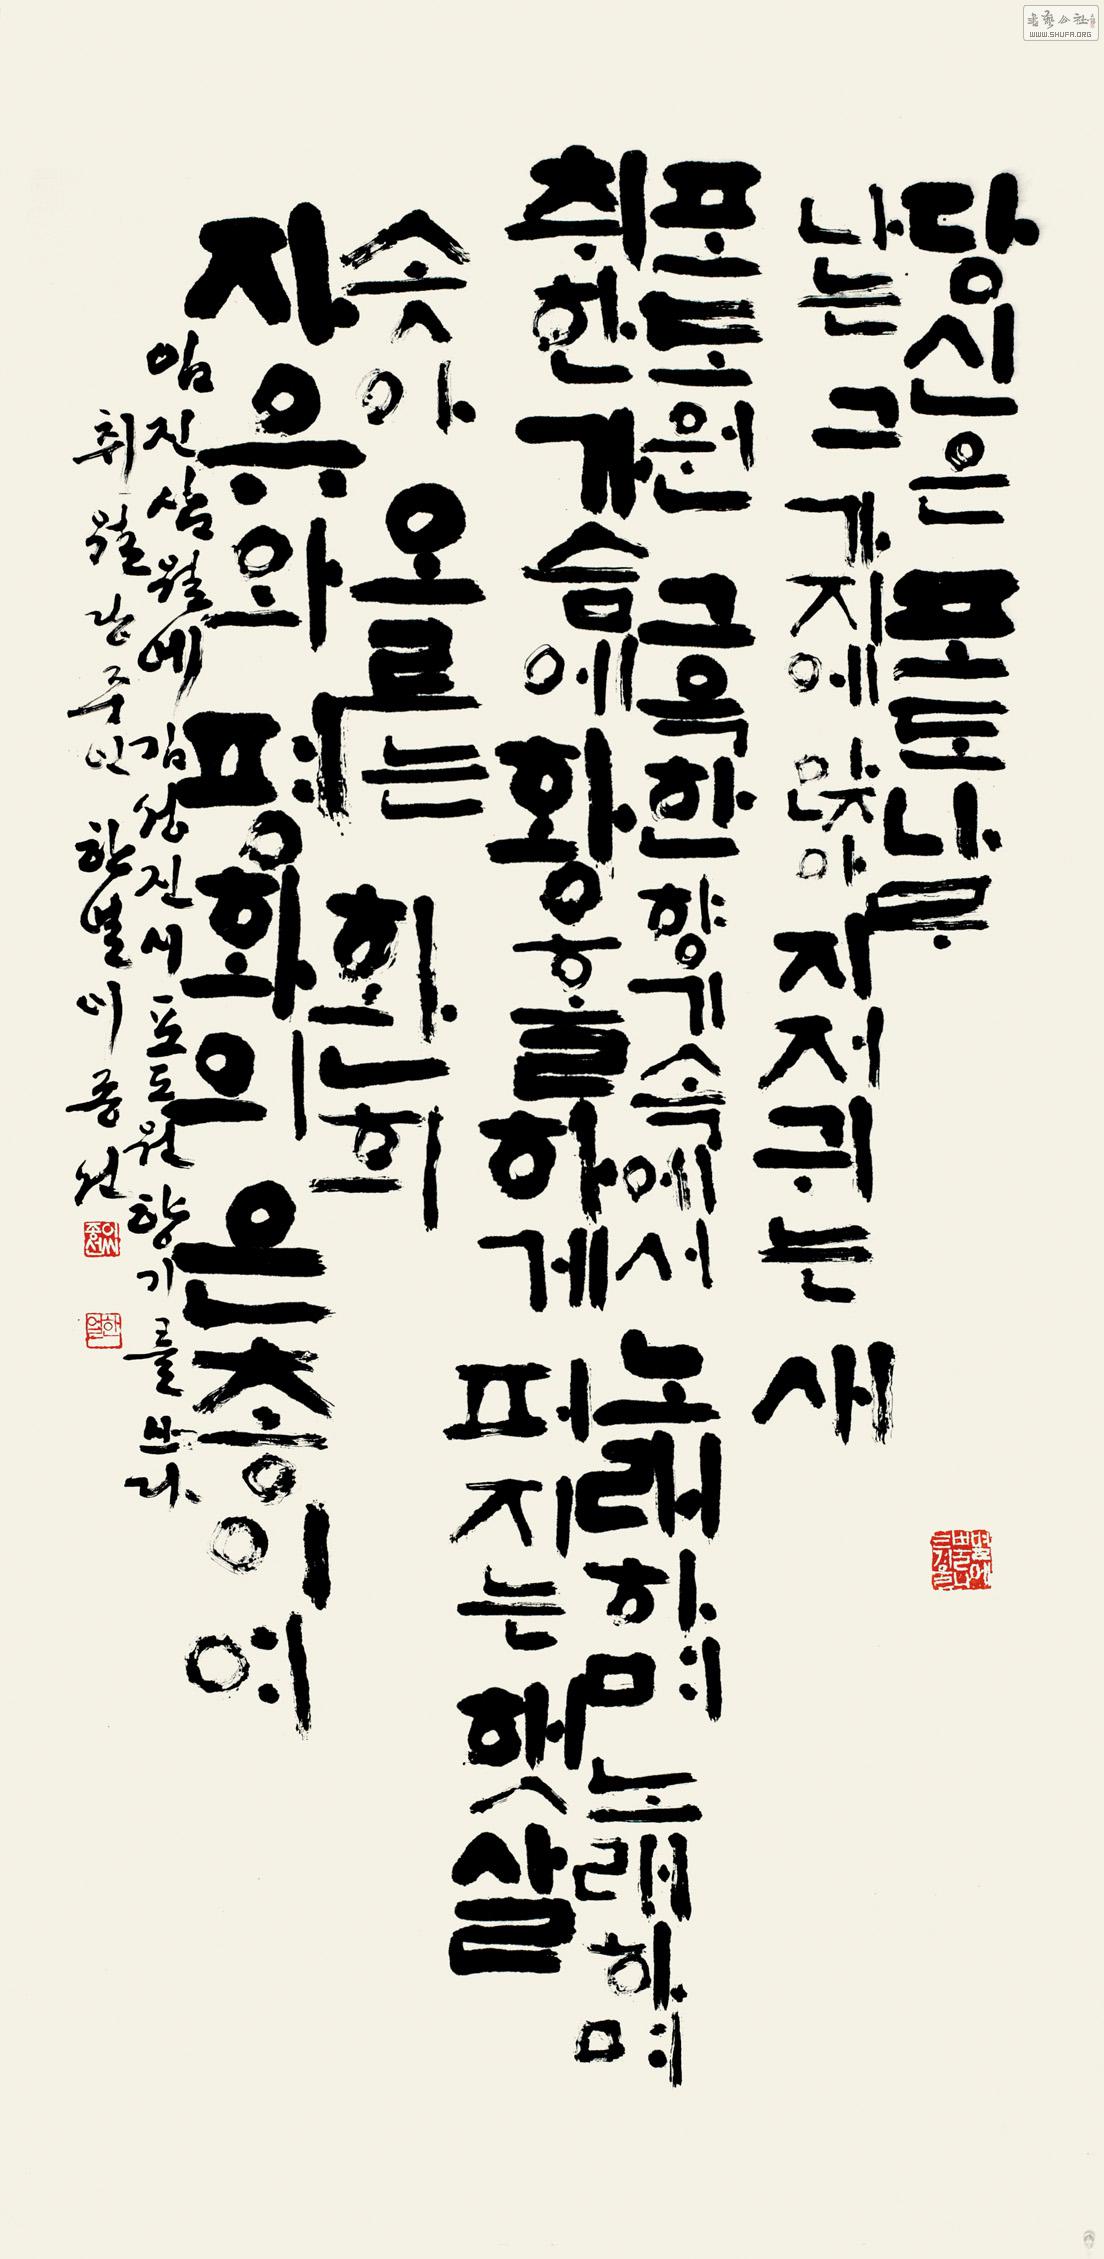 당신은 포도나무
나는 그 가지에 앉아 지저귀는 새
포도원 그윽한 향기 속에서 노래하며 노래하며
취한 가슴에 황홀하게 퍼지는 햇살
솟아오르는 환희
자유와 평화의 은총이여
임진 삼월에 김성진 새 포도원 향기를 쓰다
취월당 주인 한별 이종선
WWW.SHUFA.ORG